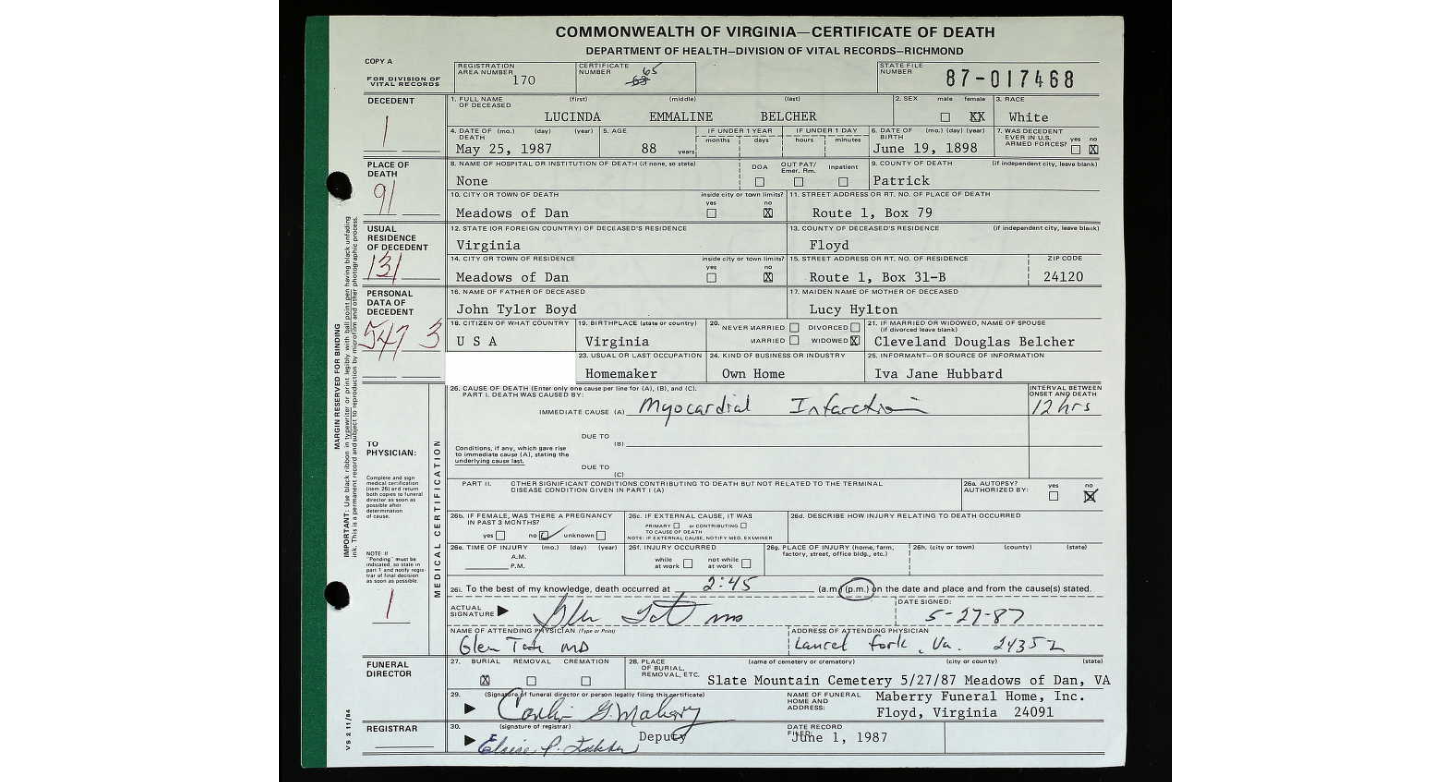 COMMONWEALTH OF VIRGINIA—CERTIFICATE OF DEATH
DEPARTMENT OF HEALTH—DIVISION OF VITAL RECORDS—RICHMOND
COPY A
FOR DIVISION OF VITAL RECORDS
REGISTRATION AREA NUMBER 170
CERTIFICATE NUMBER 63 65
STATE FILE NUMBER 87-017468
DECEDENT
1
1. FULL NAME OF DECEASED (first) (middle) (last)
LUCINDA EMMALINE BELCHER
2. SEX male female XX
3. RACE White
4. DATE OF DEATH (mo.) (day) (year) May 25, 1987
5. AGE 88 years
IF UNDER 1 YEAR months days
IF UNDER 1 DAY hours minutes
6. DATE OF BIRTH (mo.) (day) (year) June 19, 1898
7. WAS DECEDENT EVER IN U.S. ARMED FORCES? yes no X
PLACE OF DEATH
91
8. NAME OF HOSPITAL OR INSTITUTION OF DEATH (if none, so state)
None
DOA OUT PAT/ Emer. Rm. Inpatient
9. COUNTY OF DEATH (if independent city, leave blank)
Patrick
10. CITY OR TOWN OF DEATH inside city or town limits? yes no X
Meadows of Dan
11. STREET ADDRESS OR RT. NO. OF PLACE OF DEATH
Route 1, Box 79
USUAL RESIDENCE OF DECEDENT
131
12. STATE (OR FOREIGN COUNTRY) OF DECEASED'S RESIDENCE
Virginia
13. COUNTY OF DECEASED'S RESIDENCE (if independent city, leave blank)
Floyd
14. CITY OR TOWN OF RESIDENCE inside city or town limits? yes no X
Meadows of Dan
15. STREET ADDRESS OR RT. NO. OF RESIDENCE
Route 1, Box 31-B
ZIP CODE
24120
PERSONAL DATA OF DECEDENT
547 3
16. NAME OF FATHER OF DECEASED
John Tylor Boyd
17. MAIDEN NAME OF MOTHER OF DECEASED
Lucy Hylton
18. CITIZEN OF WHAT COUNTRY
U S A
19. BIRTHPLACE (state or country)
Virginia
20. NEVER MARRIED DIVORCED
MARRIED WIDOWED X
21. IF MARRIED OR WIDOWED, NAME OF SPOUSE (if divorced leave blank)
Cleveland Douglas Belcher
23. USUAL OR LAST OCCUPATION
Homemaker
24. KIND OF BUSINESS OR INDUSTRY
Own Home
25. INFORMANT—OR SOURCE OF INFORMATION
Iva Jane Hubbard
MARGIN RESERVED FOR BINDING
IMPORTANT: Use black ribbon in typewriter or print legibly with ball point pen having black unfading ink. This is a permanent record and subject to reproduction by microfilm and other photographic process.
VS 2 11/84
MEDICAL CERTIFICATION
TO PHYSICIAN:
Complete and sign medical certification (item 26) and return both copies to funeral director as soon as possible after determination of cause.
NOTE: If "Pending" must be indicated, so state in part 1 and notify registrar of final decision as soon as possible.
1
26. CAUSE OF DEATH (Enter only one cause per line for (A), (B), and (C).
PART I. DEATH WAS CAUSED BY:
IMMEDIATE CAUSE (A) Myocardial Infarction
INTERVAL BETWEEN ONSET AND DEATH
12 hrs
DUE TO (B)
Conditions, if any, which gave rise to immediate cause (A), stating the underlying cause last.
DUE TO (C)
PART II. OTHER SIGNIFICANT CONDITIONS CONTRIBUTING TO DEATH BUT NOT RELATED TO THE TERMINAL DISEASE CONDITION GIVEN IN PART I (A)
26a. AUTOPSY? AUTHORIZED BY: yes no X
26b. IF FEMALE, WAS THERE A PREGNANCY IN PAST 3 MONTHS? yes no unknown
26c. IF EXTERNAL CAUSE, IT WAS
PRIMARY or CONTRIBUTING TO CAUSE OF DEATH
NOTE: IF EXTERNAL CAUSE, NOTIFY MED. EXAMINER
26d. DESCRIBE HOW INJURY RELATING TO DEATH OCCURRED
26e. TIME OF INJURY (mo.) (day) (year)
A.M.
P.M.
26f. INJURY OCCURRED while at work not while at work
26g. PLACE OF INJURY (home, farm, factory, street, office bldg., etc.)
26h. (city or town) (county) (state)
26i. To the best of my knowledge, death occurred at 2:45 (a.m.) (p.m.) on the date and place and from the cause(s) stated.
ACTUAL SIGNATURE MD
DATE SIGNED: 5-27-87
NAME OF ATTENDING PHYSICIAN (Type or Print)
Glen MD
ADDRESS OF ATTENDING PHYSICIAN
Laurel Fork, Va. 24352
FUNERAL DIRECTOR
27. BURIAL REMOVAL CREMATION
X
28. PLACE OF BURIAL, REMOVAL, ETC. (name of cemetery or crematory) (city or county) (state)
Slate Mountain Cemetery 5/27/87 Meadows of Dan, VA
29. (Signature of funeral director or person legally filing this certificate)
NAME OF FUNERAL HOME AND ADDRESS:
Maberry Funeral Home, Inc.
Floyd, Virginia 24091
REGISTRAR
30. (signature of registrar)
Deputy
DATE RECORD FILED:
June 1, 1987